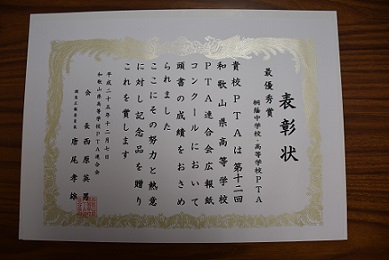 表彰状
最優秀賞
桐蔭中学校・高等学校PTA
貴校PTAは第十二回
和歌山県高等学校
PTA連合会広報紙
コンクールにおいて
頭書の成績をおさめ
られました
ここにその努力と熱意
に対し記念品を贈り
これを賞します
平成二十五年十二月七日
和歌山県高等学校PTA連合会
会長 西原英男
唐尾孝雄